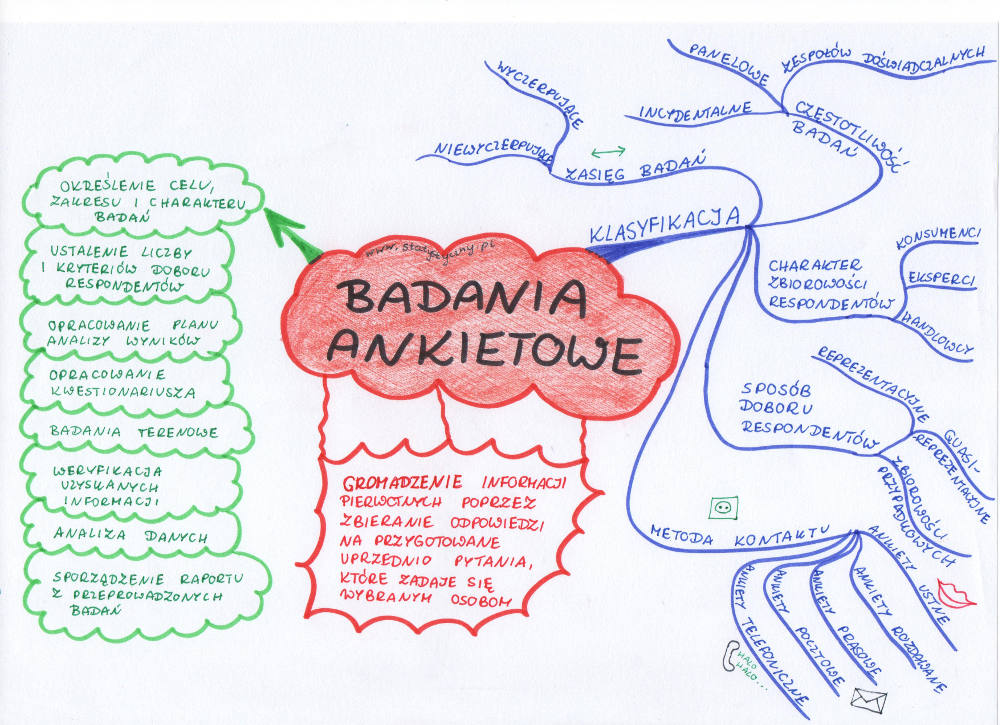 www.statystyczny.pl
BADANIA
ANKIETOWE
OKREŚLENIE CELU,
ZAKRESU I CHARAKTERU
BADAŃ
USTALENIE LICZBY
I KRYTERIÓW DOBORU
RESPONDENTÓW
OPRACOWANIE PLANU
ANALIZY WYNIKÓW
OPRACOWANIE
KWESTIONARIUSZA
BADANIA TERENOWE
WERYFIKACJA
UZYSKANYCH
INFORMACJI
ANALIZA DANYCH
SPORZĄDZENIE RAPORTU
Z PRZEPROWADZONYCH
BADAŃ
GROMADZENIE INFORMACJI
PIERWOTNYCH POPRZEZ
ZBIERANIE ODPOWIEDZI
NA PRZYGOTOWANE
UPRZEDNIO PYTANIA,
KTÓRE ZADAJE SIĘ
WYBRANYM OSOBOM
KLASYFIKACJA
ZASIĘG BADAŃ
WYCZERPUJĄCE
NIEWYCZERPUJĄCE
CZĘSTOTLIWOŚĆ
BADAŃ
PANELOWE
ZESPOŁÓW DOŚWIADCZALNYCH
INCYDENTALNE
CHARAKTER
ZBIOROWOŚCI
RESPONDENTÓW
KONSUMENCI
EKSPERCI
HANDLOWCY
SPOSÓB
DOBORU
RESPONDENTÓW
REPREZENTACYJNE
QUASI-
REPREZENTACYJNE
ZBIOROWOŚCI
PRZYPADKOWYCH
METODA KONTAKTU
ANKIETY USTNE
ANKIETY ROZDAWANE
ANKIETY PRASOWE
ANKIETY POCZTOWE
ANKIETY TELEFONICZNE
HALO
HALO...